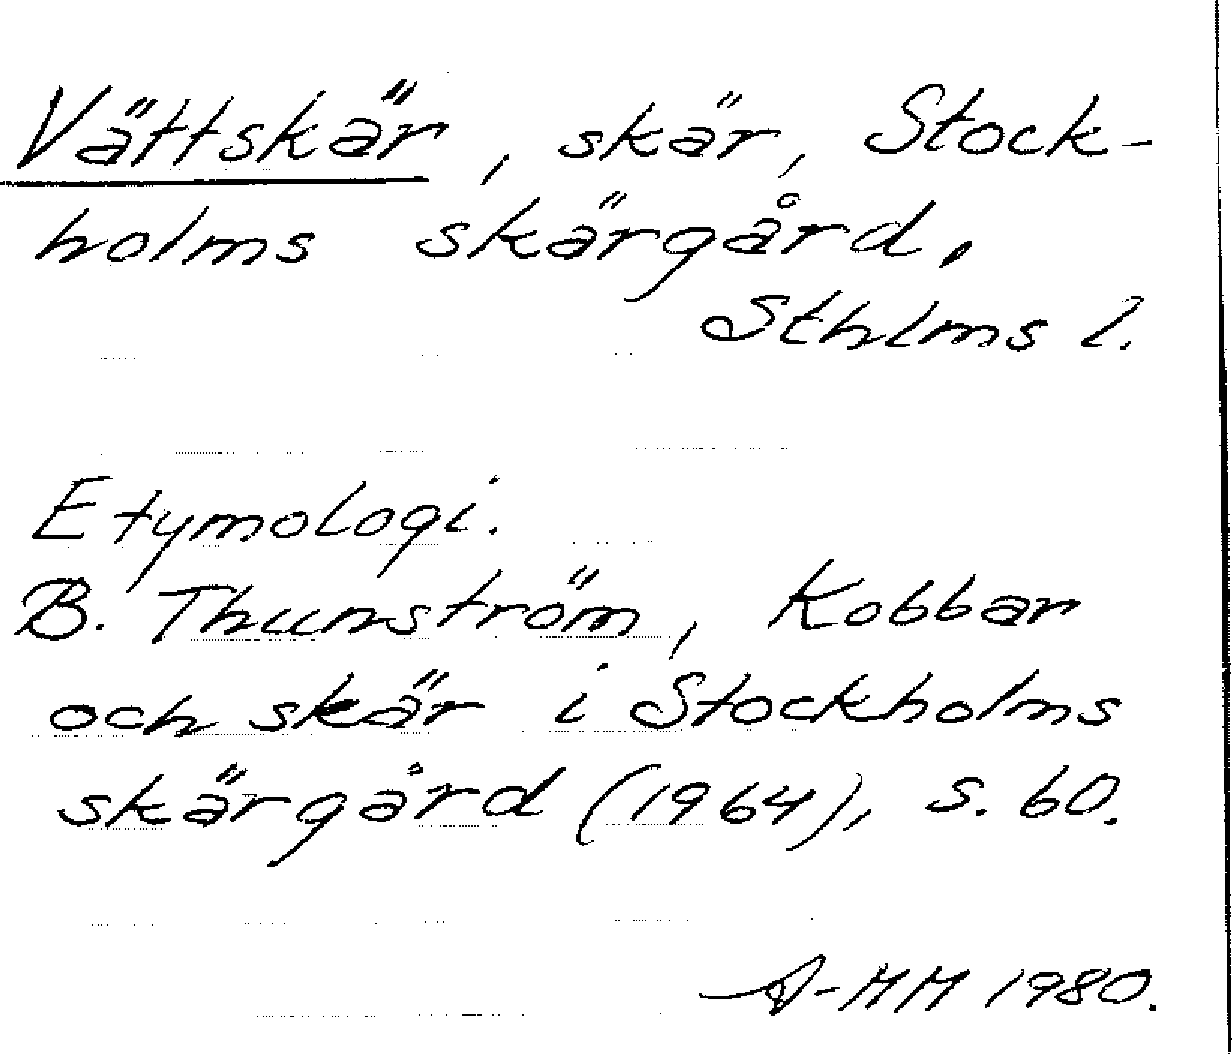 Vättskär, skär, Stock-
holms skärgård.
Sthlms l.
Etymologi.
B. Thunström, Kobbar
och skär i Stockholms
skärgård (1964), s. 60.
A-MM 1980.